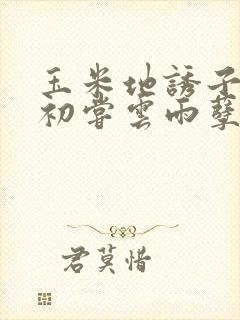 玉米地誘子
初嘗雲雨孽
君莫惜